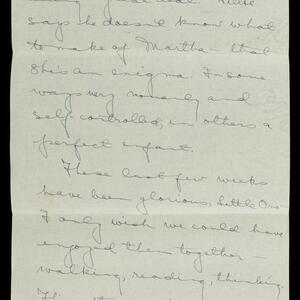 says she doesn't know what
to make of Martha - that
she's an enigma. In some
ways very womanly and
self-controlled, in others a
perfect infant.
These last few weeks
have been glorious, Little One -
I only wish we could have
enjoyed them together -
walking, reading, thinking.